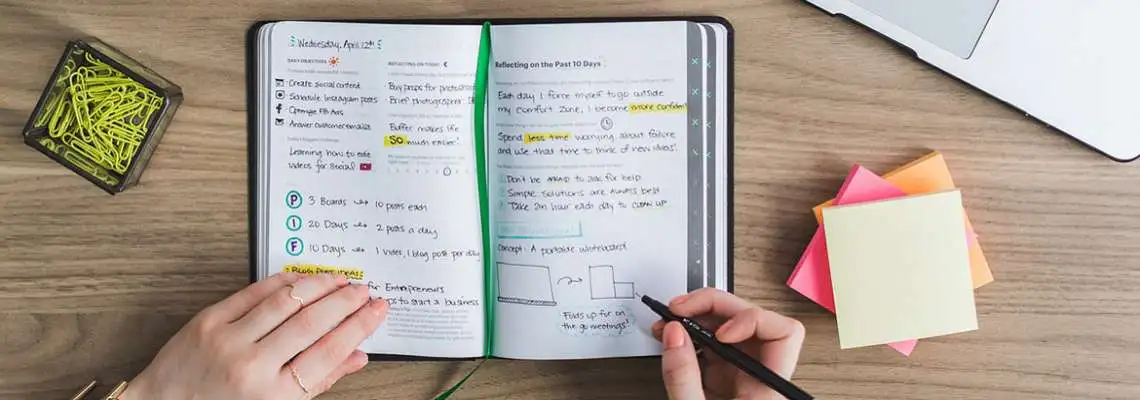 Wednesday, April 12th
DAILY OBJECTIVES
Create social content
Schedule Instagram posts
Optimize FB Ads
Answer customer emails
Learning how to edit
videos for social
REFLECTING ON TODAY
Buy props for photoshoot
Brief photographer
Buffer makes life
SO much easier!
P 3 Boards 10 posts each
I 20 Days 2 posts a day
F 10 Days 1 video, 1 blog post per day
Blog Post Ideas
for Entrepreneurs
to start a business
Reflecting on the Past 10 Days
Each day I force myself to go outside
my comfort zone, I become more confident
Spend less time worrying about failure
and use that time to think of new ideas!
Don't be AFRAID to ask for help
Simple solutions are ALWAYS best
Take an hour each day to CLEAN UP
Concept: A portable whiteboard
Folds up for on
the go meetings!